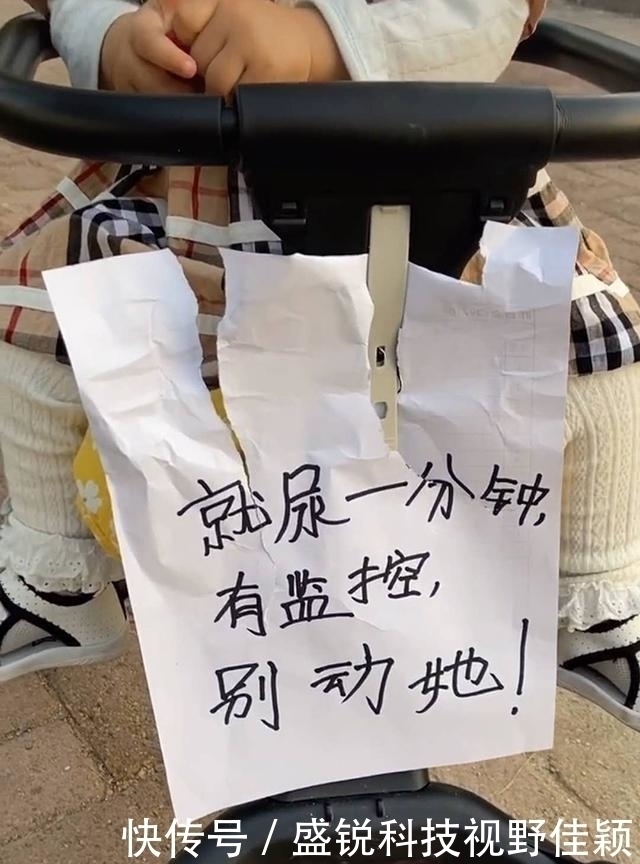 就尿一分钟,
有监控,
别动她!
快传号 / 盛锐科技视野佳颖